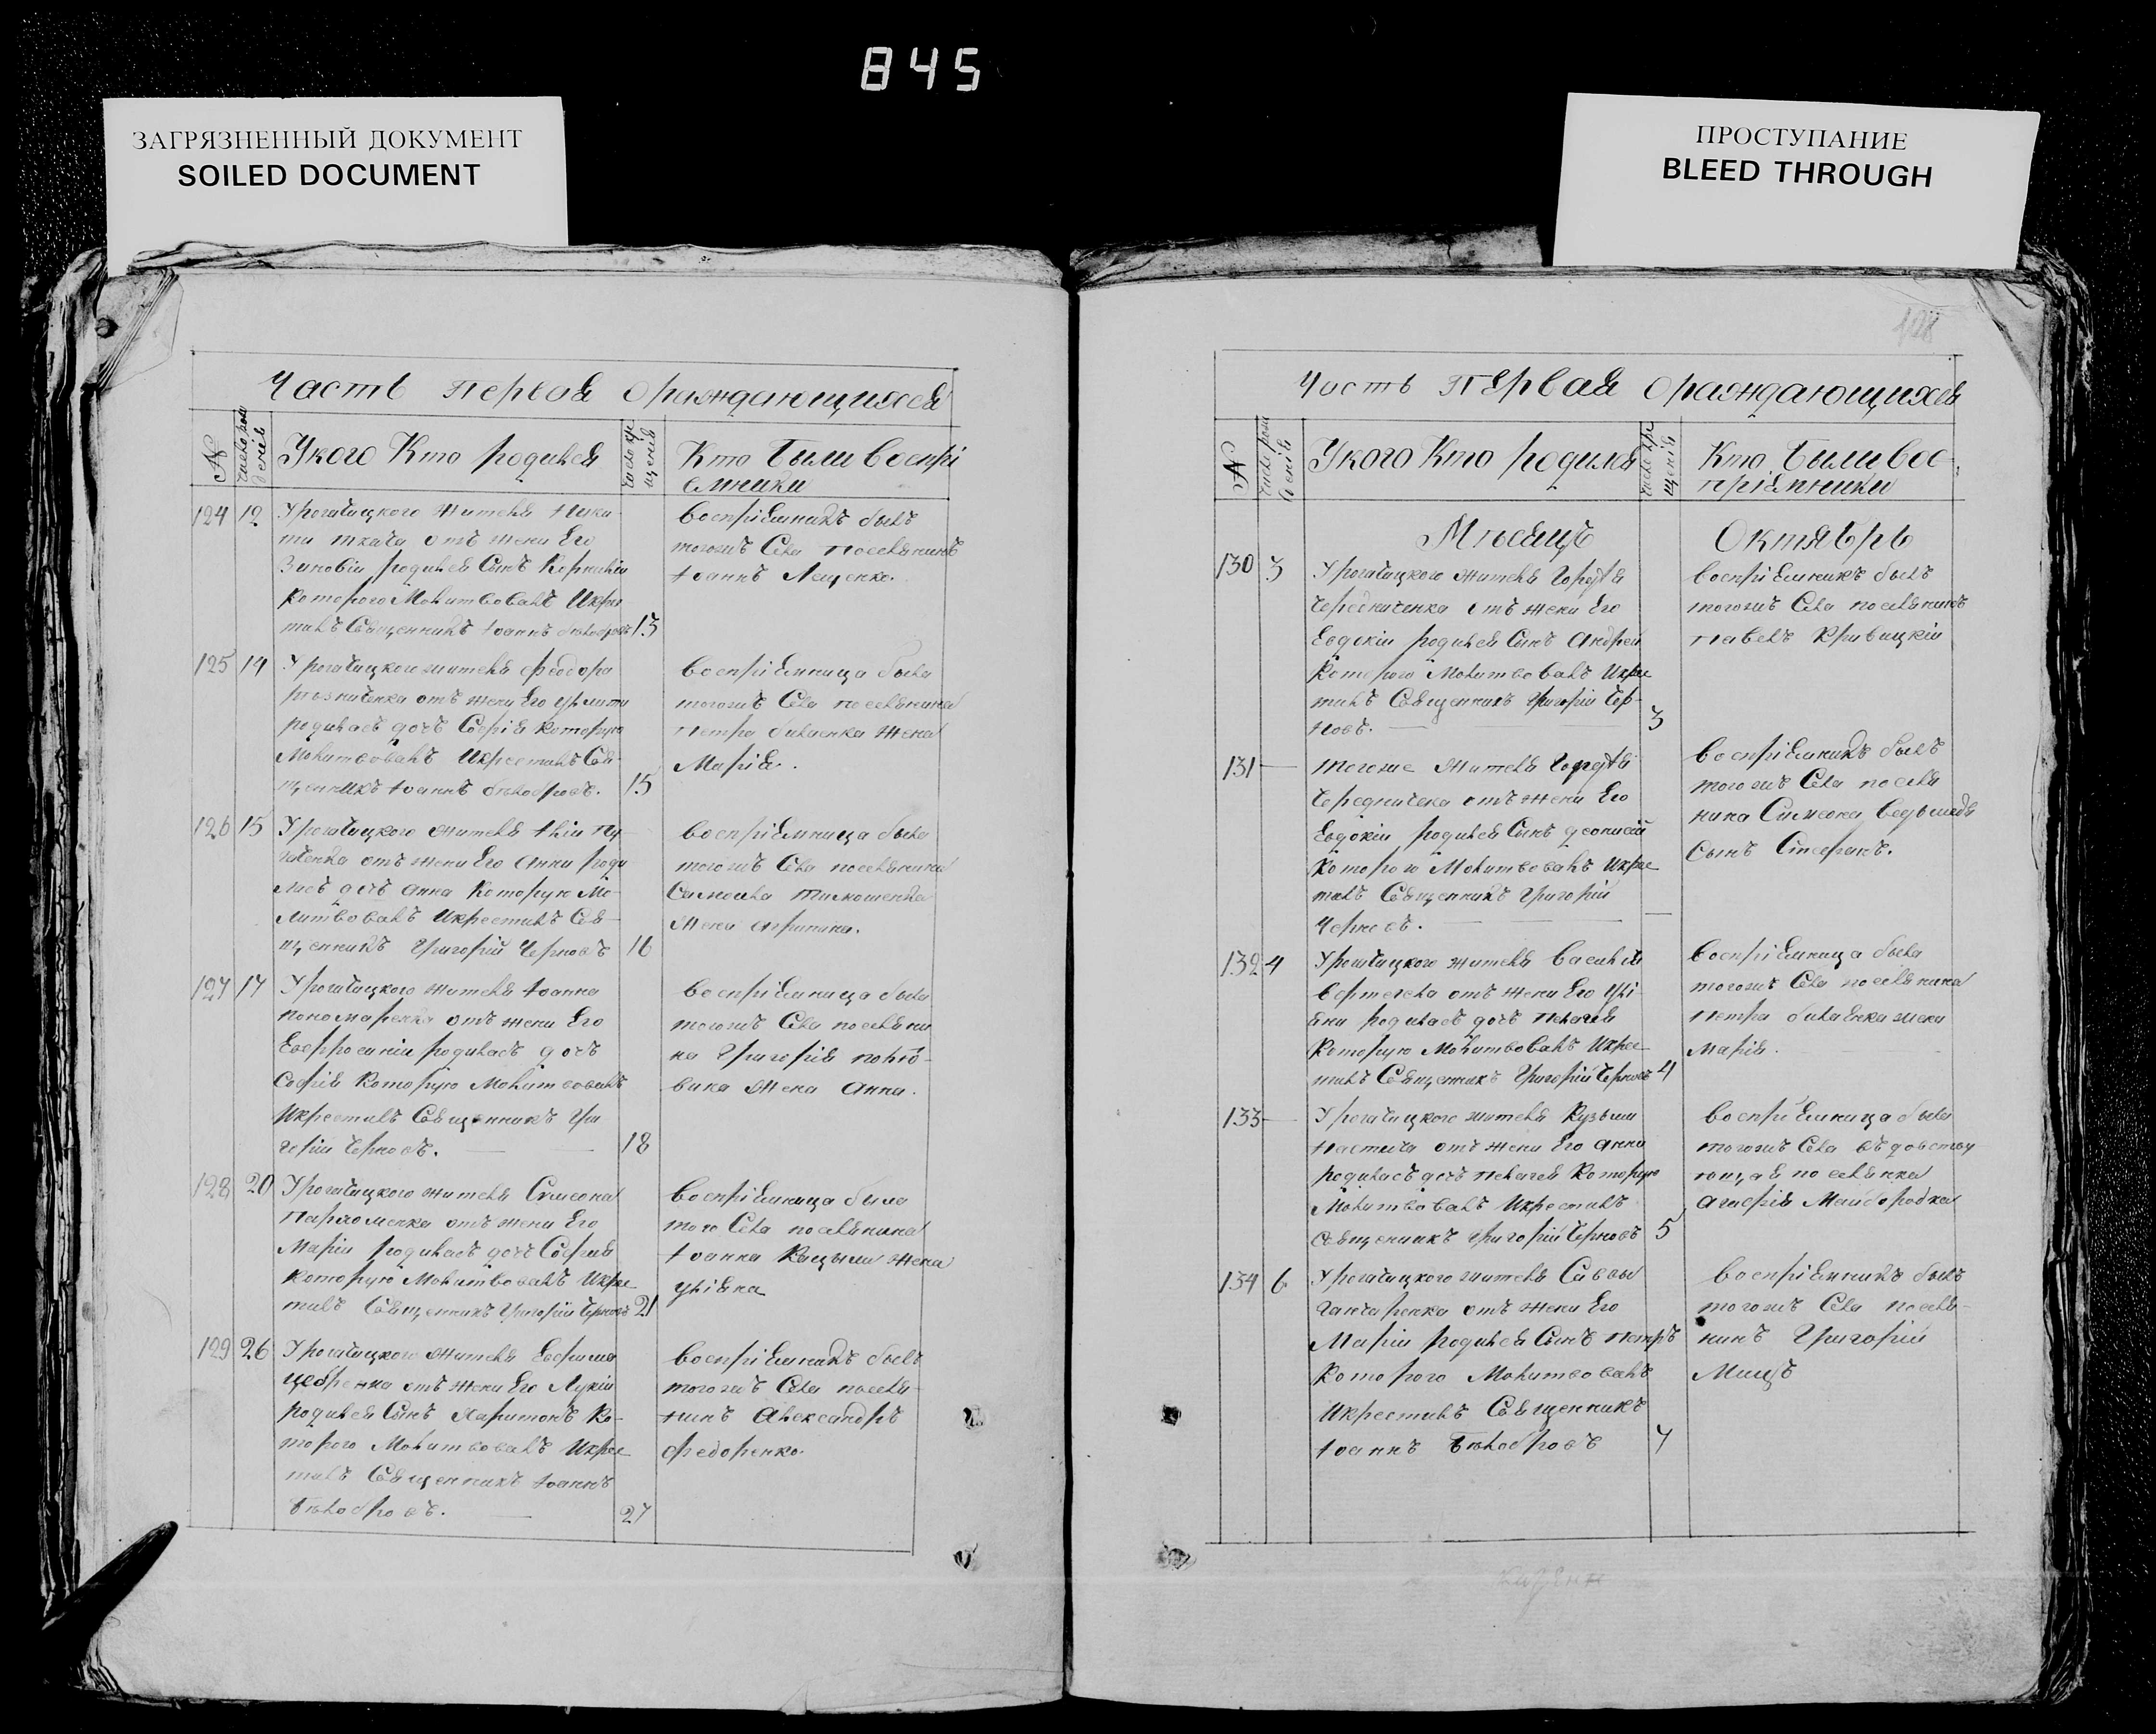 845
ЗАГРЯЗНЕННЫЙ ДОКУМЕНТ
SOILED DOCUMENT
ПРОСТУПАНИЕ
BLEED THROUGH
Часть первая ораждающихся
N
Укого Кто родился
Кто были воспрі
емники
124 12 Урогатицкого жителя Ники
ти ткача отъ жены Его
Зиновіи родился Сынъ Корнилій
которого Молитвовалъ Икрес
тилъ Священникъ Іоаннъ Белобровъ 13
воспріемникъ былъ
тогожъ Села поселянинъ
Іоаннъ Лещенко.
125 14 Урогатицкого жителя Феодора
отъ жены Его Улиты
родилась дочь Софія которую
Молитвовалъ Икрестилъ Свя
щенникъ Іоаннъ бѣлобровъ. 15
воспріемница была
тогожъ Села поселянина
Петра билаенка жена
Марія.
126 15 Урогатицкого жителя Иліи Пу
отъ жены Его Анны роди
лась дочь Анна Которую Мо
литвовалъ Икрестилъ Свя
щенникъ Григорій Черновъ 16
воспріемница была
тогожъ Села поселянина
Самоила Тимошенка
жена
127 17 Урогатицкого жителя Іоанна
пономаренка отъ жены Его
Евфросиніи родилась дочь
Софія Которую Молитвовалъ
Икрестилъ Священникъ Гри
горій Черновъ. 18
воспріемница была
тогожъ Села поселяни
на Григорія
жена Анна.
128 20 Урогатицкого жителя Симеона
Пархоменка отъ жены Его
Маріи родилась дочь Софія
которую Молитвовалъ Икрес
тилъ Священникъ Григорій Черновъ 21
воспріемница была
того Села поселянина
Іоанна жена
Уліяна
129 26 Урогатицкого жителя Евфима
отъ жены Его Лукіи
родился Сынъ Харитонъ Ко
торого Молитвовалъ Икрес
тилъ Священникъ Іоаннъ
Бѣлобровъ. 27
воспріемникъ былъ
тогожъ Села поселя
нинъ Александръ
Федоренко.
108
Часть первая ораждающихся
N
Укого Кто родился
Кто были вос-
пріемники
Мѣсяцъ Октябрь
130 3 Урогатицкого жителя Гордѣя
Чередниченка отъ жены Его
Евдокіи родился Сынъ Андрей
Которого Молитвовалъ Икрес
тилъ Священникъ Григорій Чер-
новъ. 3
воспріемникъ былъ
тогожъ Села поселянинъ
Павелъ Кривицкій
131 тогоже жителя Гордѣя
Чередничека отъ жены Его
Евдокіи родился Сынъ Деонисій
Которого Молитвовалъ Икрес
тилъ Священникъ Григорій
Черновъ.
воспріемникъ былъ
тогожъ Села поселя
нина Симеона
Сынъ Стефанъ.
132 4 Урогатицкого жителя Василія
отъ жены Его Улі
яны родилась дочь Пелагея
Которую Молитвовалъ Икрес
тилъ Священникъ Григорій Черновъ 4
воспріемница была
тогожъ Села поселянина
Петра билаенка жена
Марія.
133 Урогатицкого жителя Кузьмы
отъ жены Его Анны
родилась дочь Пелагея Которую
Молитвовалъ Икрестилъ
Священникъ Григорій Черновъ 5
воспріемница была
тогожъ Села вдовству
ющая поселянка
Агафія Майбородка
134 6 Урогатицкого жителя Саввы
Ганчаренка отъ жены Его
Маріи родился Сынъ Петръ
Которого Молитвовалъ
Икрестилъ Священникъ
Іоаннъ Бѣлобровъ 7
воспріемникъ былъ
тогожъ Села поселя-
нинъ Григорій